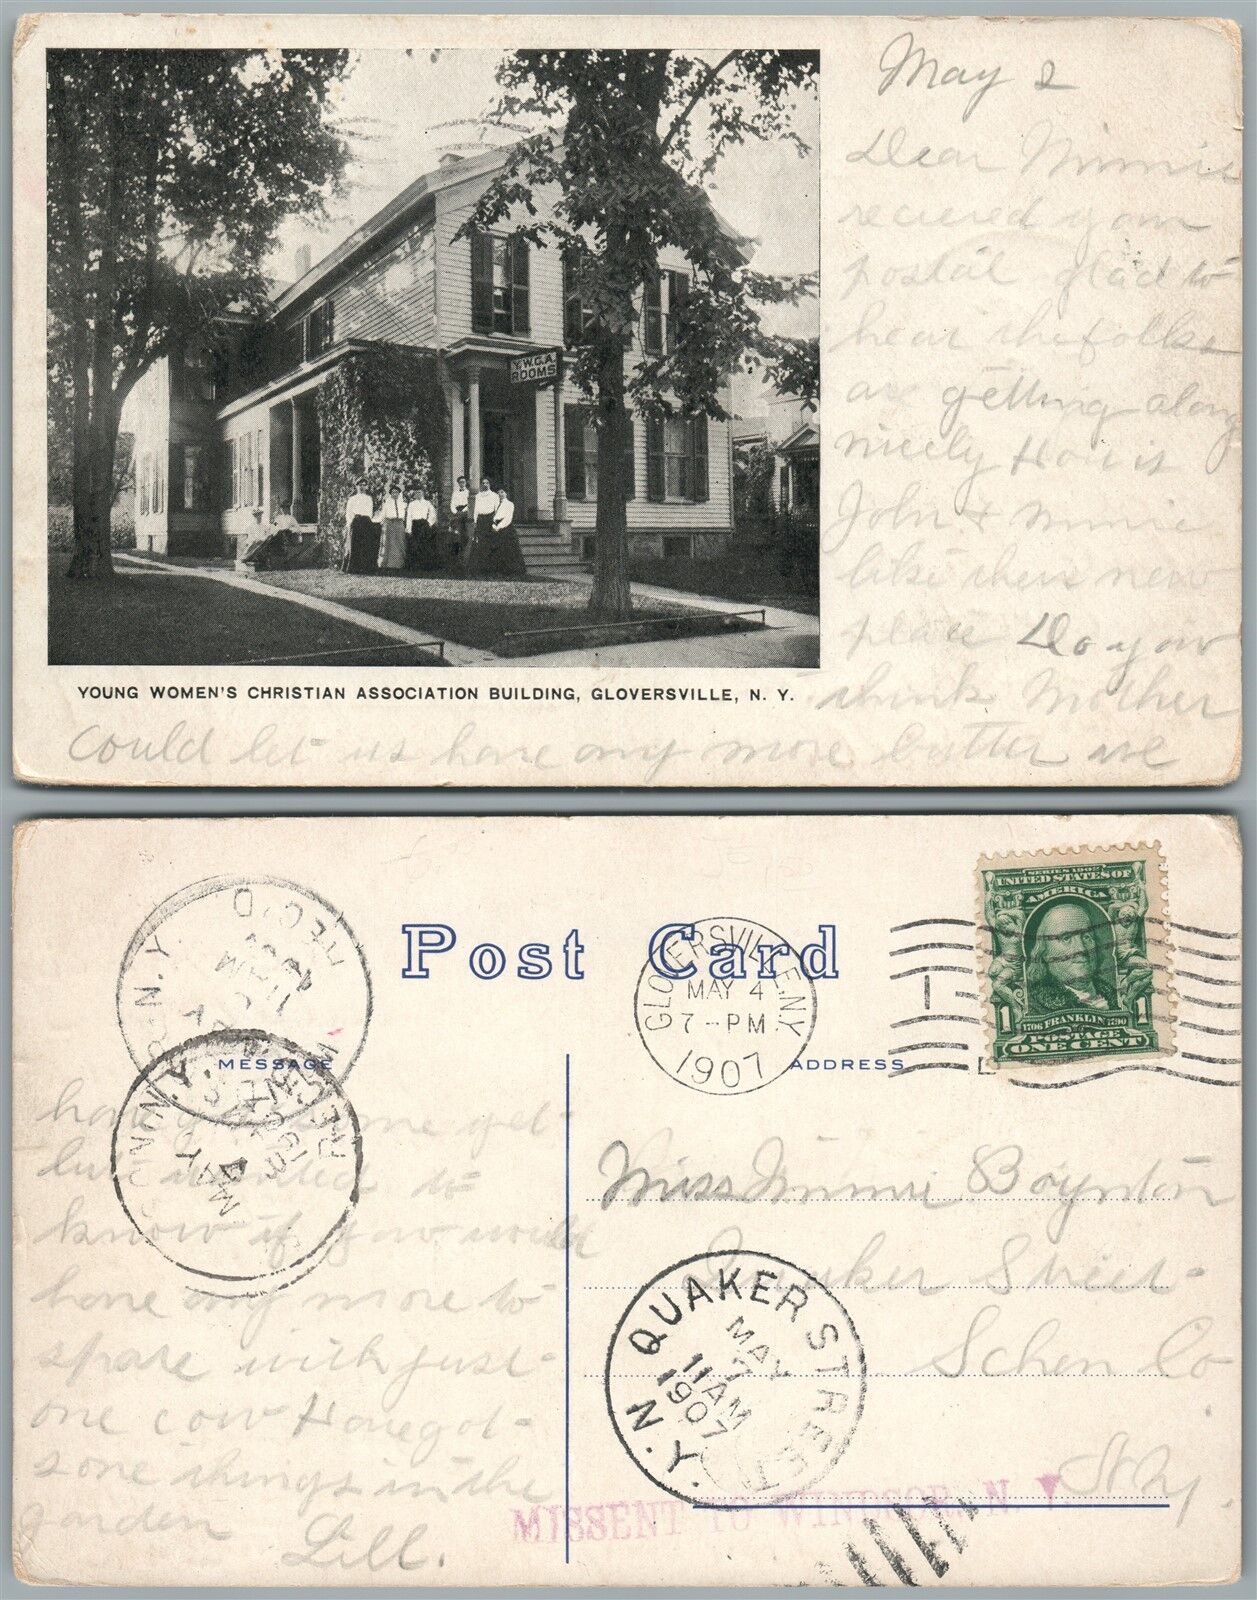 May 2
Dear Minnie
recieved your
postal glad to
hear the folks
are getting along
nicely How is
John & Minnie
like their new
place Do you
think Mother
could let us have any more butter we
Y.W.C.A.
ROOMS
YOUNG WOMEN'S CHRISTIAN ASSOCIATION BUILDING, GLOVERSVILLE, N. Y.
Post Card
REC'D
N.Y.
GLOVERSVILLE, N.Y.
MAY 4
7-PM
1907
1
SERIES 1902
UNITED STATES OF
AMERICA
1 1
1706 FRANKLIN 1790
POSTAGE
ONE CENT
MESSAGE
ADDRESS
have some yet
but wanted to
know if you would
have any more to
spare with just
one cow Have got
some things in the
garden
Lill.
Miss Minnie Boynton
Quaker Street
Schen Co.
N.Y.
QUAKER STREET
N.Y.
MAY
7
11AM
1907
MISSENT TO WINDSOR, N. Y.